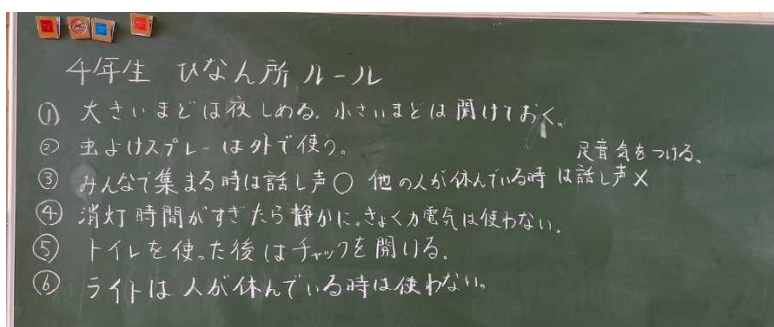 4年生 ひなん所 ルール
① 大きいまどは夜しめる。小さいまどは開けておく。
② 虫よけスプレーは外で使う。
足音気をつける、
③ みんなで集まる時は話し声○ 他の人が休んでいる時は話し声×
④ 消灯時間がすぎたら静かに。きょくカ電気は使わない。
⑤ トイレを使った後はチャックを開ける。
⑥ ライトは人が休んでいる時は使わない。